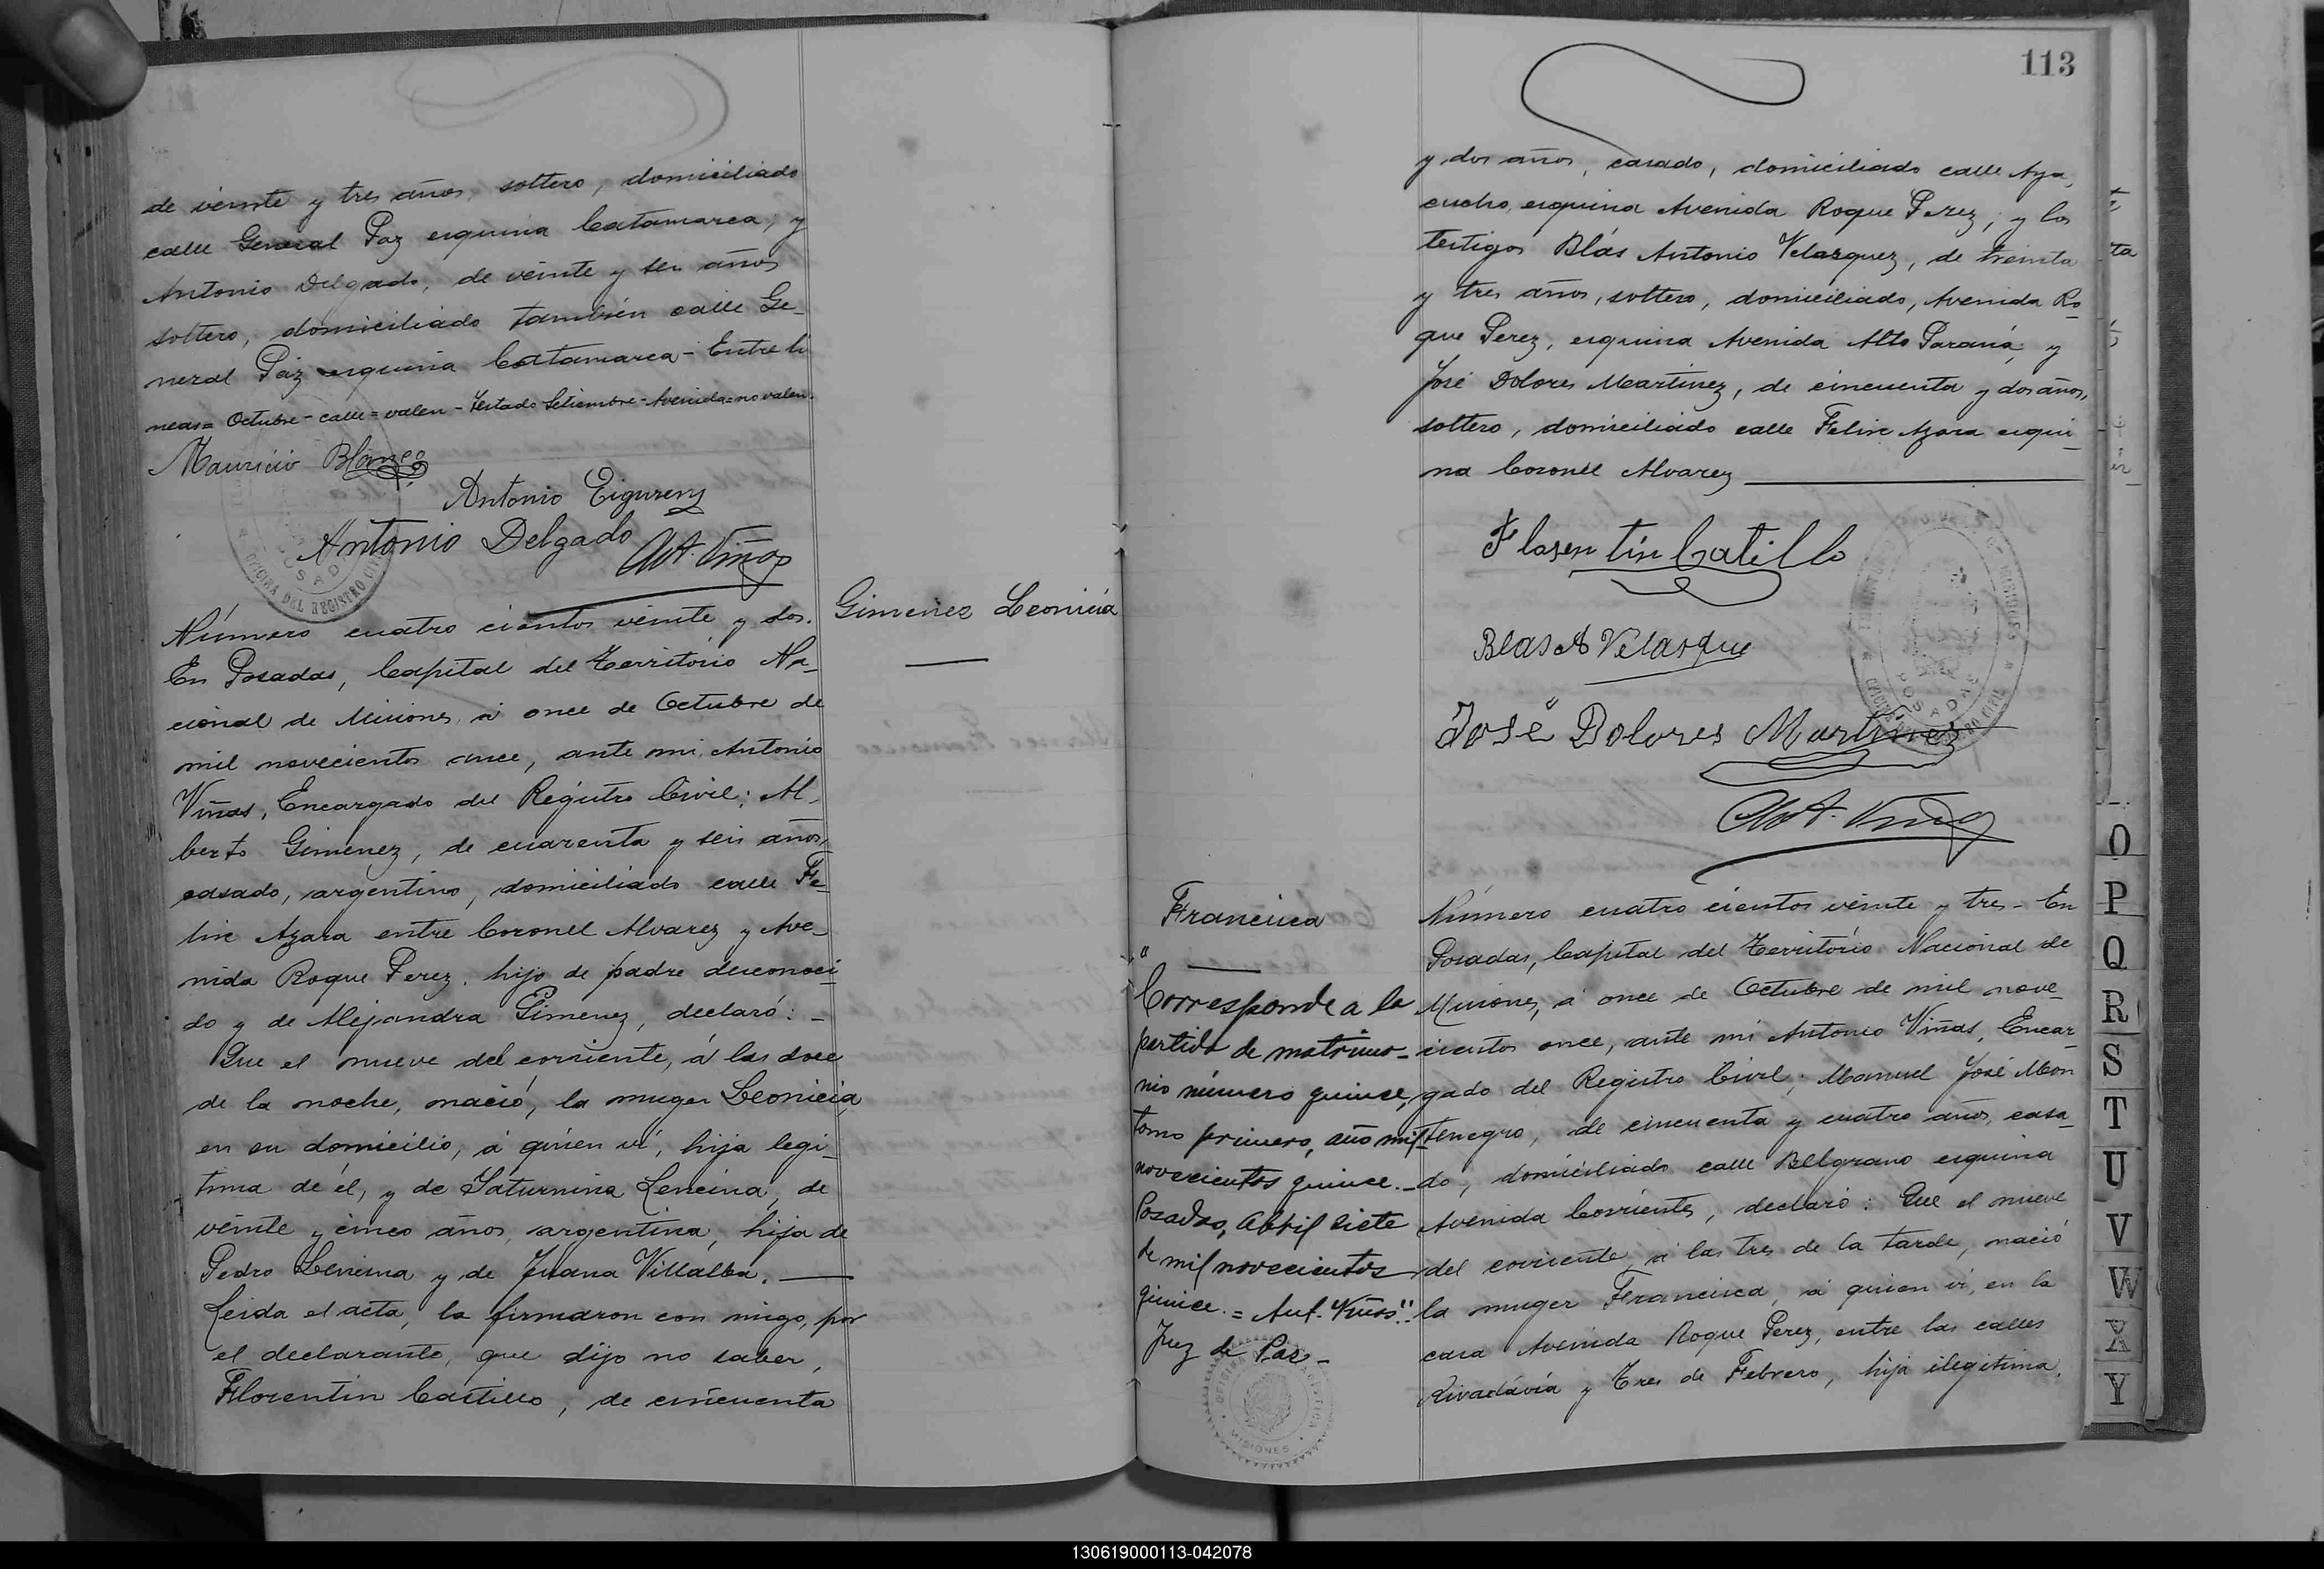 de veinte y tres años, soltero, domiciliado
calle General Paz esquina Catamarca; y
Antonio Delgado, de veinte y seis años
soltero, domiciliado también calle Ge-
neral Paz esquina Catamarca - Entre li
neas = Octubre - calle = valen - Testado Setiembre - Avenida = no valen.
Mauricio Blanco
Antonio Eigurenz
Antonio Delgado
Ant. Viñas
Número cuatro cientos veinte y dos.
Gimenez Leonicia
En Posadas, Capital del Territorio Na-
cional de Misiones, á once de Octubre de
mil novecientos once, ante mi, Antonio
Viñas, Encargado del Registro Civil; Al-
berto Gimenez, de cuarenta y seis años,
casado, argentino, domiciliado calle Fe-
lix Azara entre Coronel Alvarez y Ave-
nida Roque Perez, hijo de padre desconoci-
do y de Alejandra Gimenez, declaró: -
Que el nueve del corriente, á las doce
de la noche, nació, la muger Leonicia,
en su domicilio, á quien ví, hija legi-
tima de él, y de Saturnina Lencina, de
veinte y cinco años, argentina, hija de
Pedro Lencina y de Juana Villalba.
Leida el acta, la firmaron con migo, por
el declarante, que dijo no saber,
Florentin Castillo, de cincuenta
113
y dos años, casado, domiciliado calle Aya-
cucho, esquina Avenida Roque Perez; y los
testigos Blás Antonio Velazquez, de treinta
y tres años, soltero, domiciliado, Avenida Ro-
que Perez, esquina Avenida Alto Paraná; y
José Dolores Martinez, de cincuenta y dos años,
soltero, domiciliado calle Felix Azara esqui-
na Coronel Alvarez
Flosen tín Catillo
Blas A Velasque
José Dolores Martinez
Ant. Viñas
Francisca
Corresponde a la
partida de matrimo-
nio número quince,
tomo primero, año mil
novecientos quince. -
Posadas, Abril siete
de mil novecientos
quince. = Ant. Viñas"
Juez de Paz -
OFICINA
MISIONES
Número cuatro cientos veinte y tres - En
Posadas, Capital del Territorio Nacional de
Misiones, á once de Octubre de mil nove-
cientos once, ante mi Antonio Viñas, Encar-
gado del Registro Civil; Manuel José Mon
tenegro, de cincuenta y cuatro años, casa-
do, domiciliado calle Belgrano esquina
Avenida Corrientes, declaró: Que el nueve
del corriente á las tres de la tarde, nació
la muger Francisca, á quien ví, en la
casa Avenida Roque Perez, entre las calles
Rivadávia y Tres de Febrero, hija ilegitima,
O
P
Q
R
S
T
U
V
W
X
Y
130619000113-042078